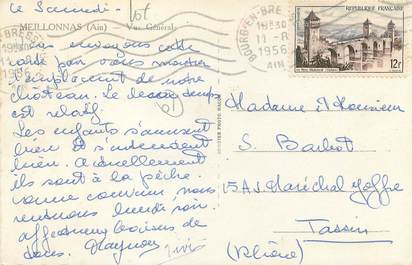 le Samedi -
MEILLONNAS (Ain) Vue Générale
envoyons cette
carte pour vous montrer
l'emplacement de notre
château. Le beau temps
est relatif
Les enfants s'amusent
bien et s'entendent
bien. Actuellement
ils sont à la pêche.
comme convenu nous
rentrons lundi soir.
affectueux baisers de
tous.
BOURG-EN-BRESSE
18H30
11-8
1956
AIN
REPUBLIQUE FRANÇAISE
POSTES
12F
Madame et Monsieur
S. Barbot
15 A.J. Maréchal Joffre
Tassin
(Rhône)